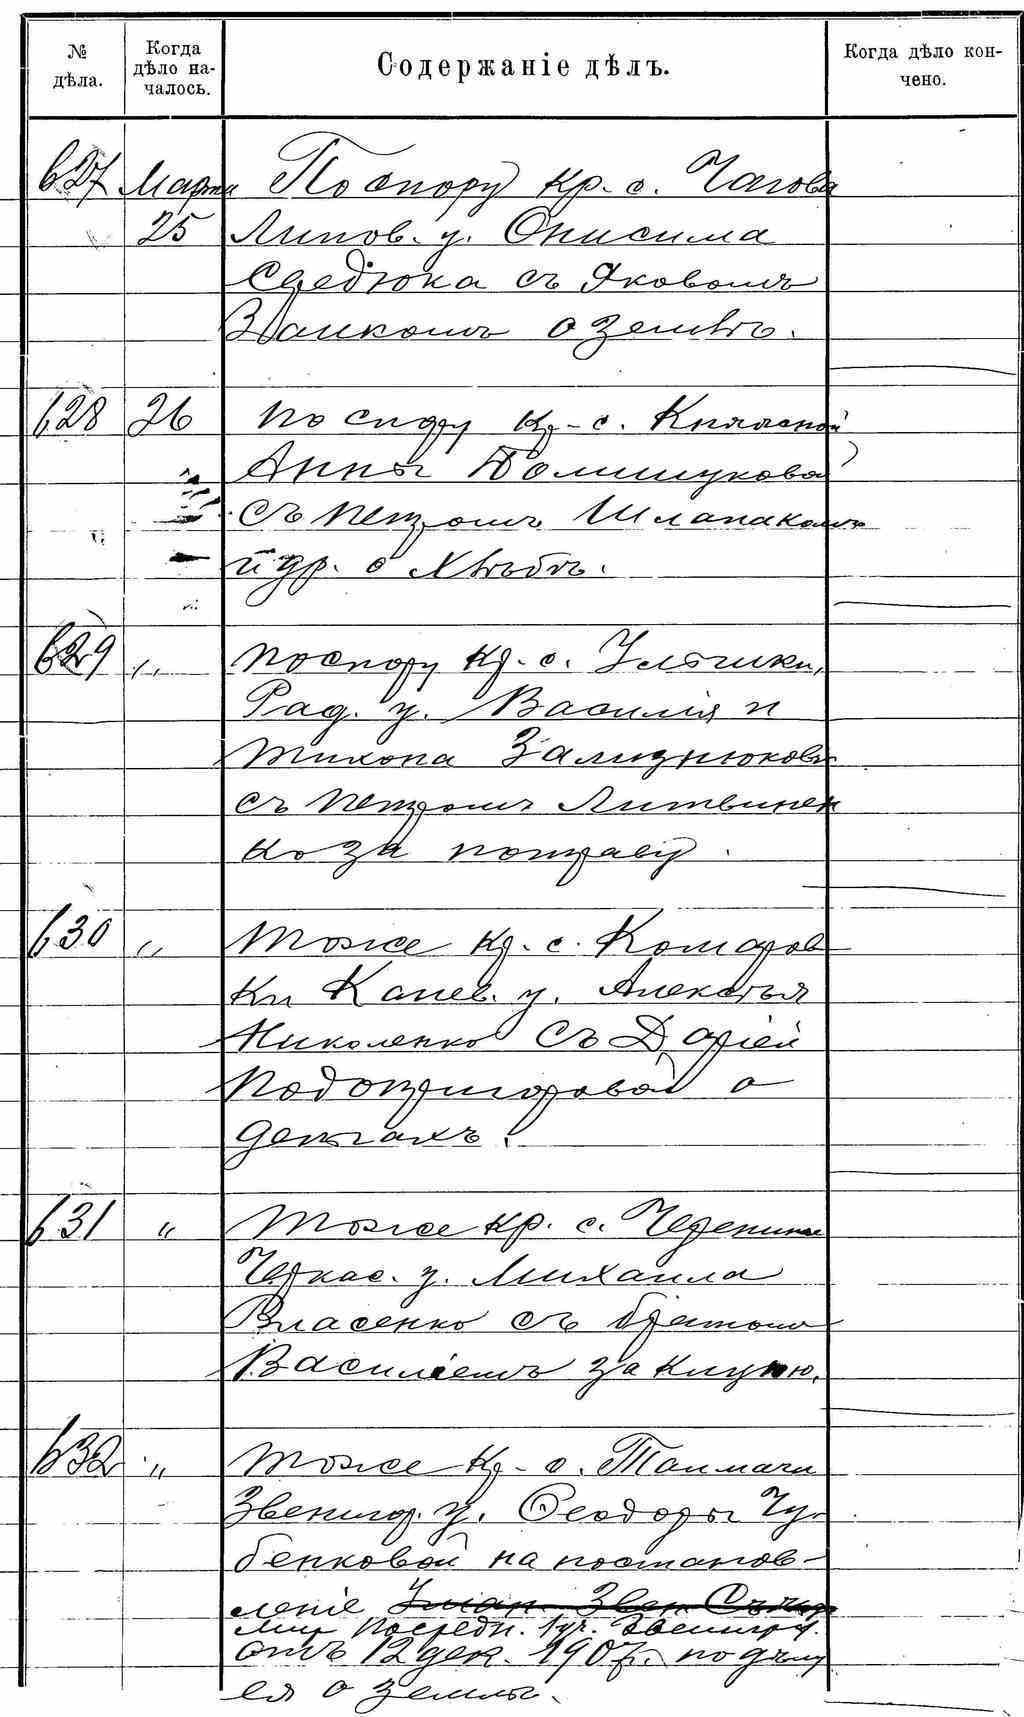 № дѣла.
Когда дѣло началось.
Содержаніе дѣлъ.
Когда дѣло кончено.
627 Марта По спору кр. с. Чагова
25 Липов. у. Онисима
Середюка съ Яковомъ
Заикомъ о землѣ.
628 26 По спору кр-с. Княжной
Анны Полищуковой
съ Петромъ Шлапакомъ
и др. о хлѣбѣ.
629 " По спору кр-с. Улашки,
Рад. у. Василія и
Тихона Зализнюковъ
съ Петромъ Литвинен
ко за потраву.
630 " Тоже кр-с. Комаров
ки Канев. у. Алексѣя
Николенко съ Даріей
Подопригоровой о
деньгахъ.
631 " Тоже кр. с. Черепина
Черкас. у. Михаила
Власенко съ братомъ
Василіемъ за клуню.
632 " Тоже кр-с. Толмачи
Звенигор. у. Ѳеодоры Чу-
бенковой на постанов-
леніе Уман. Звен. Съѣзда
мир. Посредн. 1 уч. Звенигор.
отъ 12 дек. 1907г. по дѣлу
ея о землѣ.